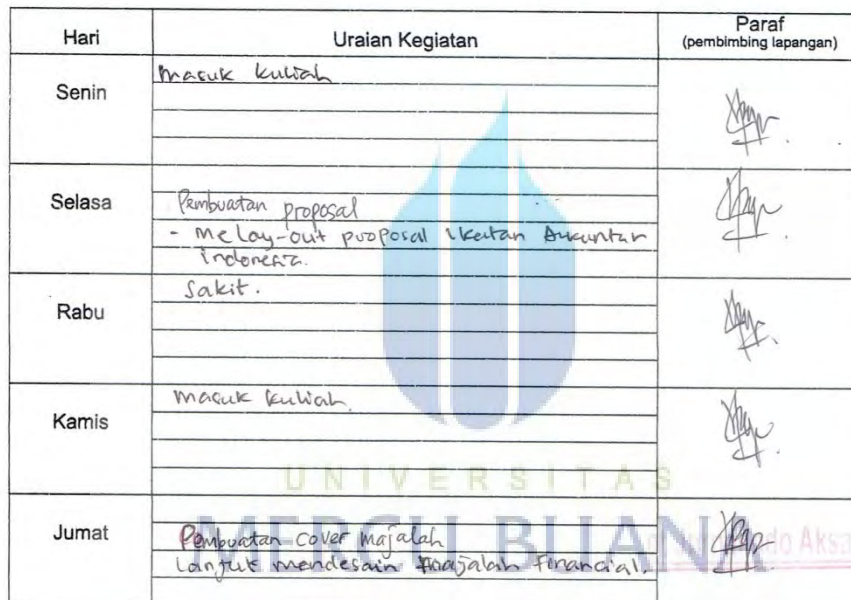 Hari Uraian Kegiatan Paraf
(pembimbing lapangan)
Senin masuk kuliah
Selasa Pembuatan proposal
- Me Lay-out proposal Ikatan Akuntan
indonesia.
Rabu Sakit.
Kamis masuk kuliah.
UNIVERSITAS
MERCU BUANA
Jumat Pembuatan cover majalah
Lanjut mendesain majalah Financial.
do Aksa